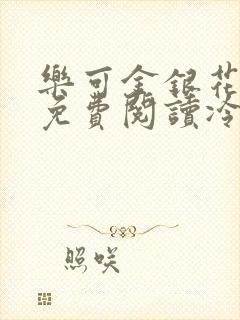 樂可金銀花
免費閱讀冷
照咲